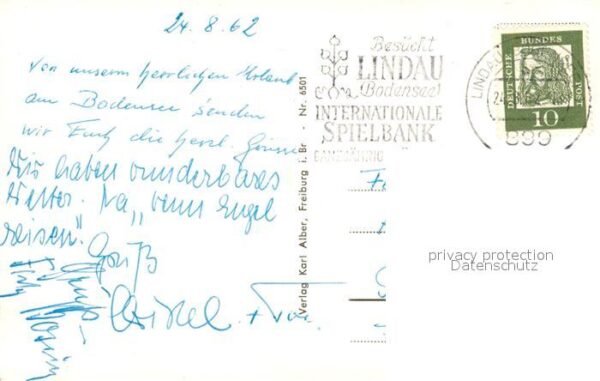 24.8.62
Von unserm herrlichen Urlaub
am Bodensee senden
wir Euch die herzl. Grüsse
Wir haben wunderbares
Wetter. Na, „wenn Engel
reisen".
Gruß
+
Verlag Karl Alber, Freiburg i. Br · Nr. 6501
Besucht
LINDAU
(Bodensee)
INTERNATIONALE
SPIELBANK
GANZJÄHRIG
LINDAU
DEUTSCHE BUNDESPOST
10
privacy protection
Datenschutz